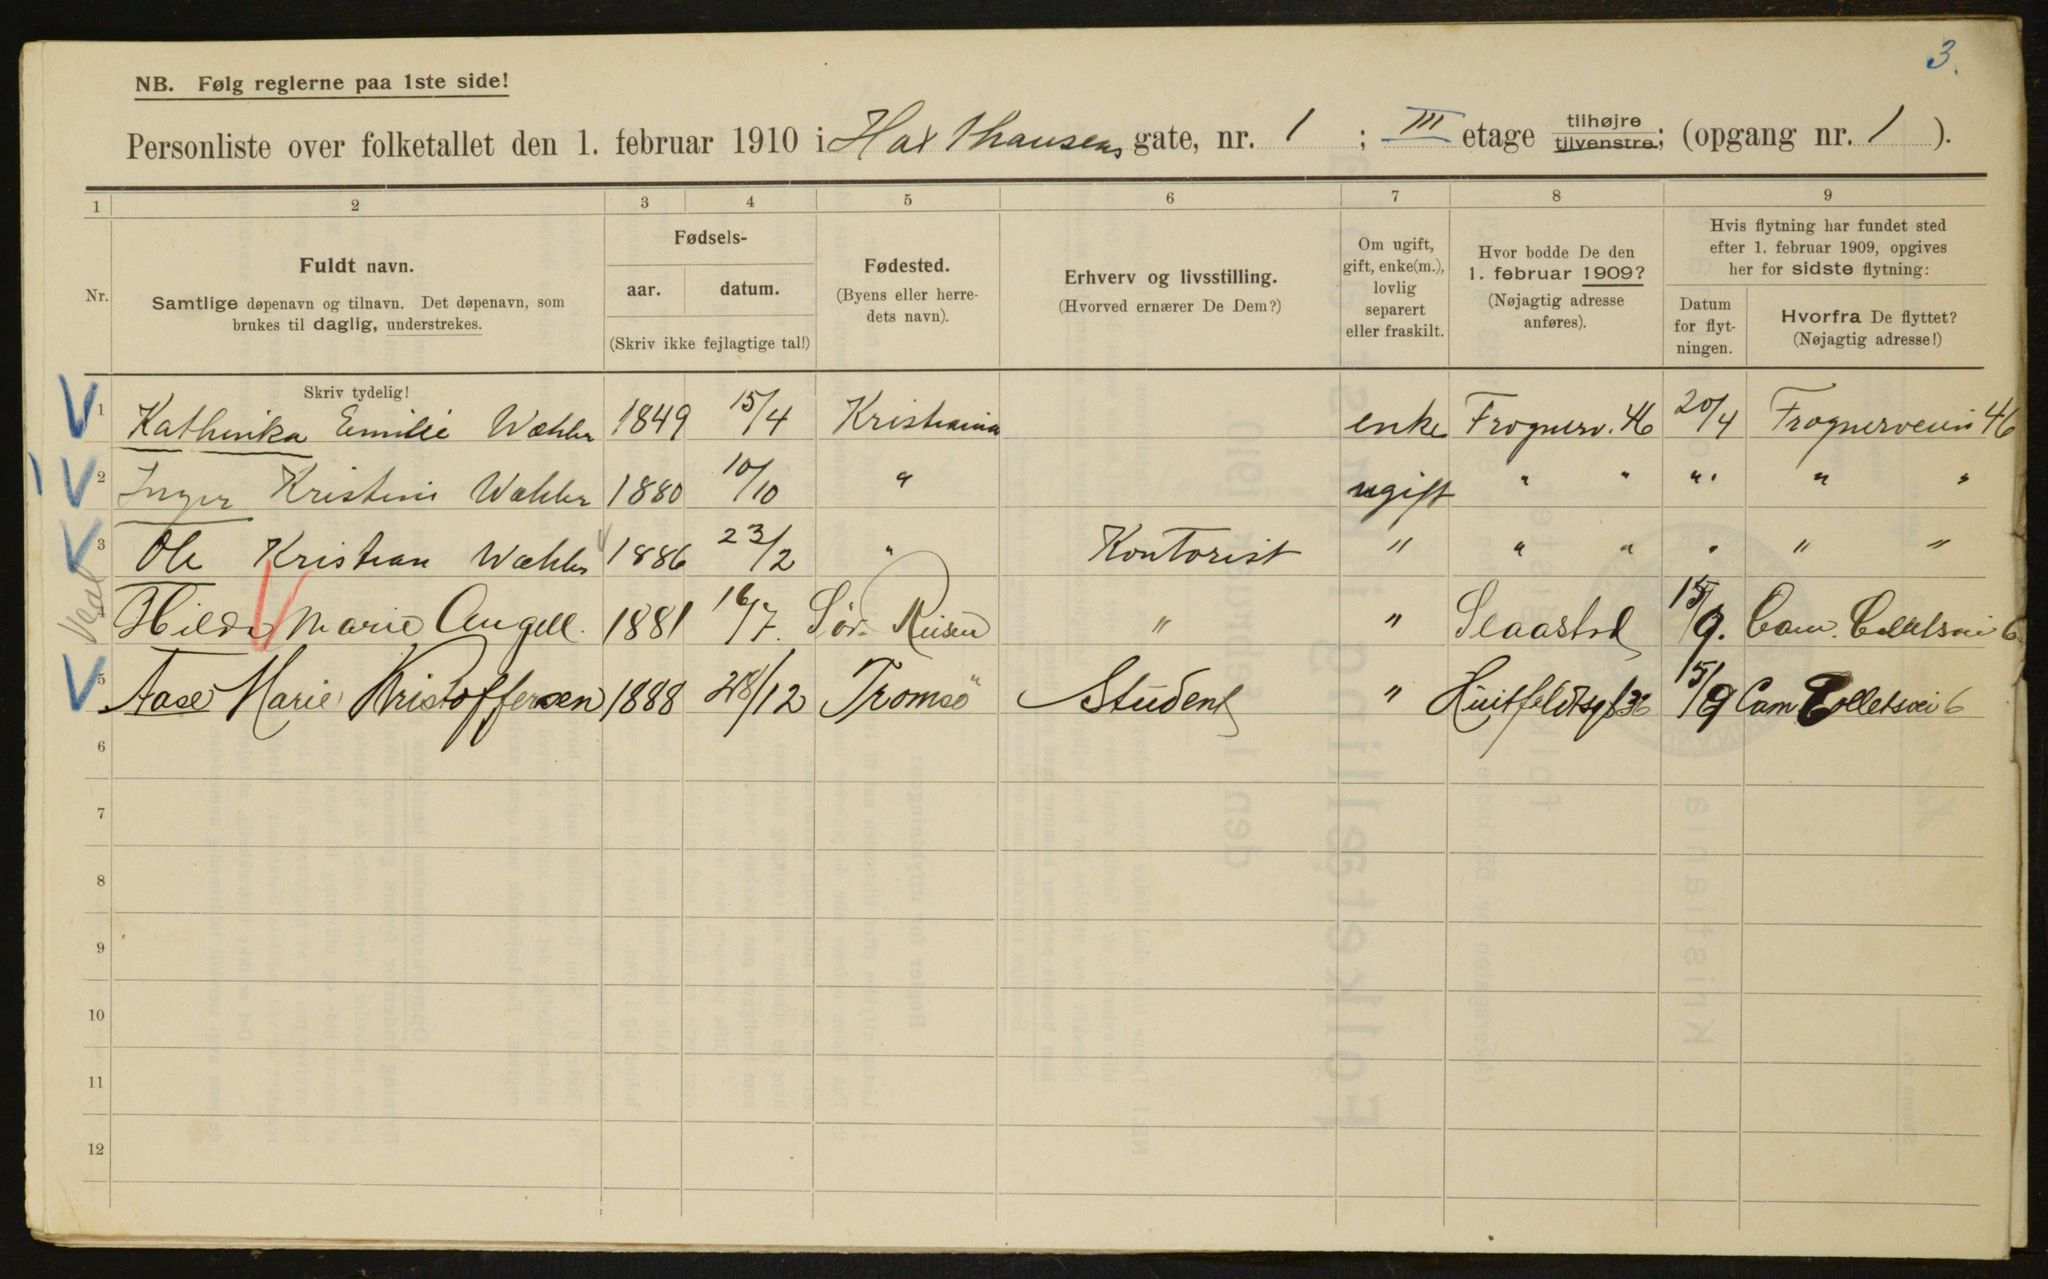 3.
NB. Følg reglerne paa 1ste side!
Personliste over folketallet den 1. februar 1910 i Haxthausens gate, nr. 1 ; III etage tilhøjre tilvenstre; (opgang nr. 1 ).
1 2 3 4 5 6 7 8 9
Nr.
Fuldt navn.
Samtlige døpenavn og tilnavn. Det døpenavn, som
brukes til daglig, understrekes.
Skriv tydelig!
Fødsels-
aar. datum.
(Skriv ikke fejlagtige tal!)
Fødested.
(Byens eller herre-
dets navn).
Erhverv og livsstilling.
(Hvorved ernærer De Dem?)
Om ugift,
gift, enke(m.),
lovlig
separert
eller fraskilt.
Hvor bodde De den
1. februar 1909?
(Nøjagtig adresse
anføres).
Hvis flytning har fundet sted
efter 1. februar 1909, opgives
her for sidste flytning:
Datum
for flyt-
ningen.
Hvorfra De flyttet?
(Nøjagtig adresse!)
1 Kathinka Emilie Wæhler 1849 15/4 Kristiania enke Frognerv. 46 20/4 Frognerveien 46
2 Inger Kristine Wæhler 1880 10/10 " ugift " " " " "
3 Ole Kristian Wæhler 1886 23/2 " Kontorist " " " " " "
4 Hilda Marie Angell. 1881 16/7. Sör. Reisen " " 15/9. Cam. Colletsvei 6
5 Aase Marie Kristoffersen 1888 28/12 Tromsö Student " Huitfeldtsgt 36 15/9 Cam Colletsvei 6
6
7
8
9
10
11
12